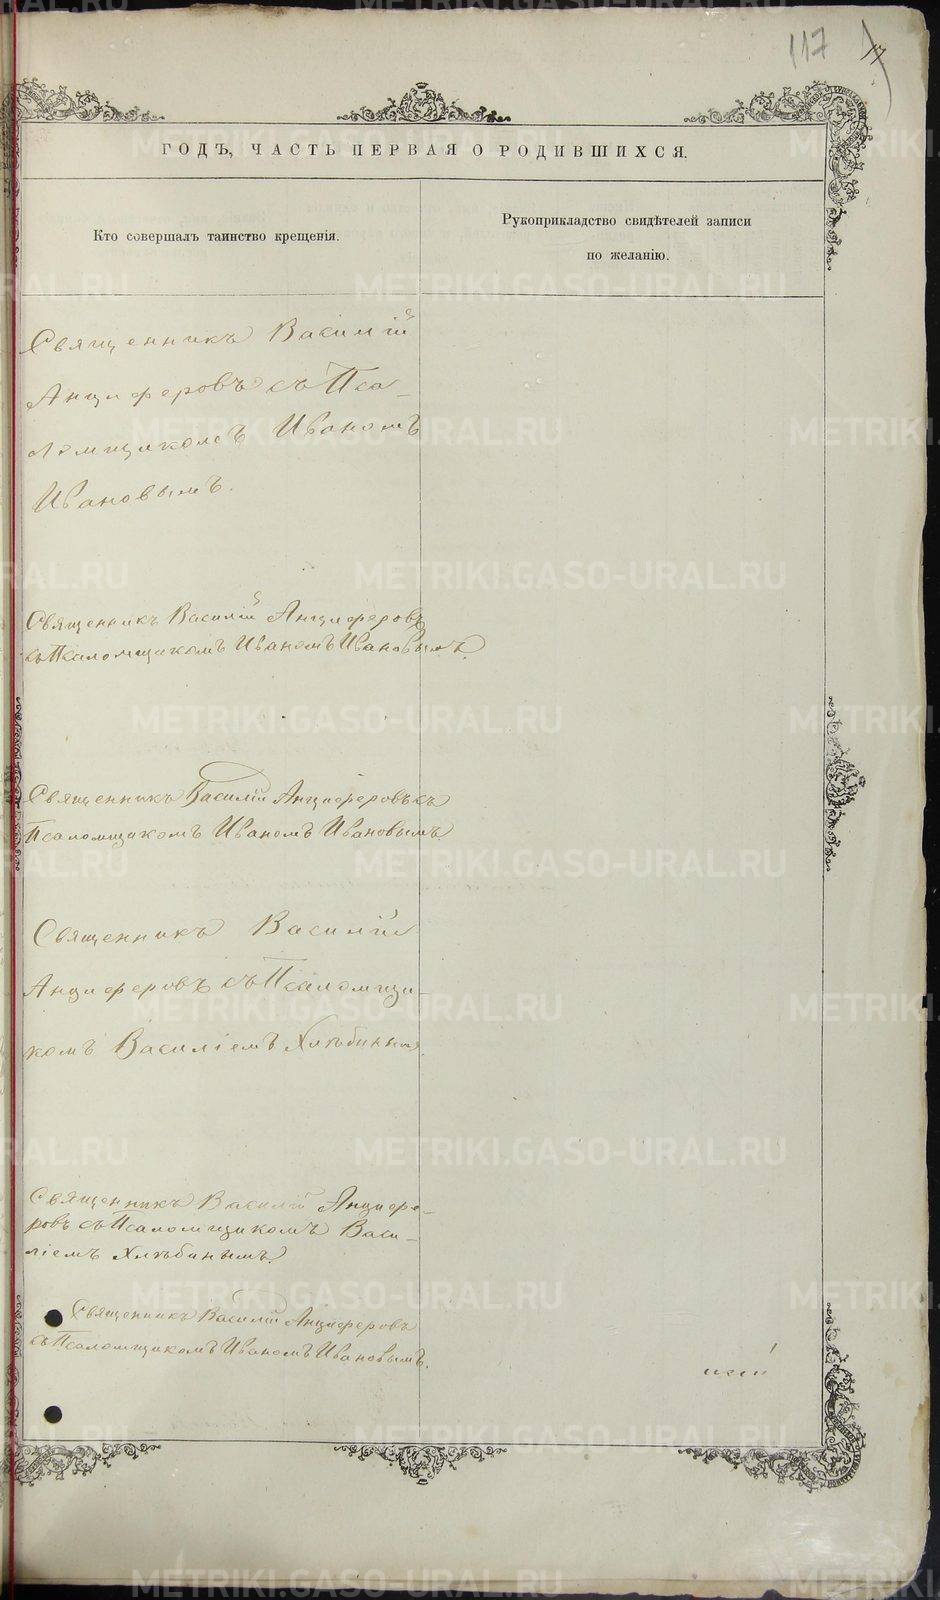 117
17
ГОДЪ, ЧАСТЬ ПЕРВАЯ О РОДИВШИХСЯ.
Кто совершалъ таинство крещенія.
Рукоприкладство свидѣтелей записи
по желанію.
Священникъ Василій
Анциферовъ съ Пса-
ломщикомъ Иваномъ
Ивановымъ.
Священникъ Василій Анциферовъ
съ Псаломщикомъ Иваномъ Ивановымъ.
Священникъ Василій Анциферовъ съ
Псаломщикомъ Иваномъ Ивановымъ.
Священникъ Василій
Анциферовъ съ Псаломщи-
комъ Василіемъ Хлѣбинымъ.
Священникъ Василій Анцифе-
ровъ съ Псаломщикомъ Васи-
ліемъ Хлѣбинымъ.
Священникъ Василій Анциферовъ
съ Псаломщикомъ Иваномъ Ивановымъ.
METRIKI.GASO-URAL.RU